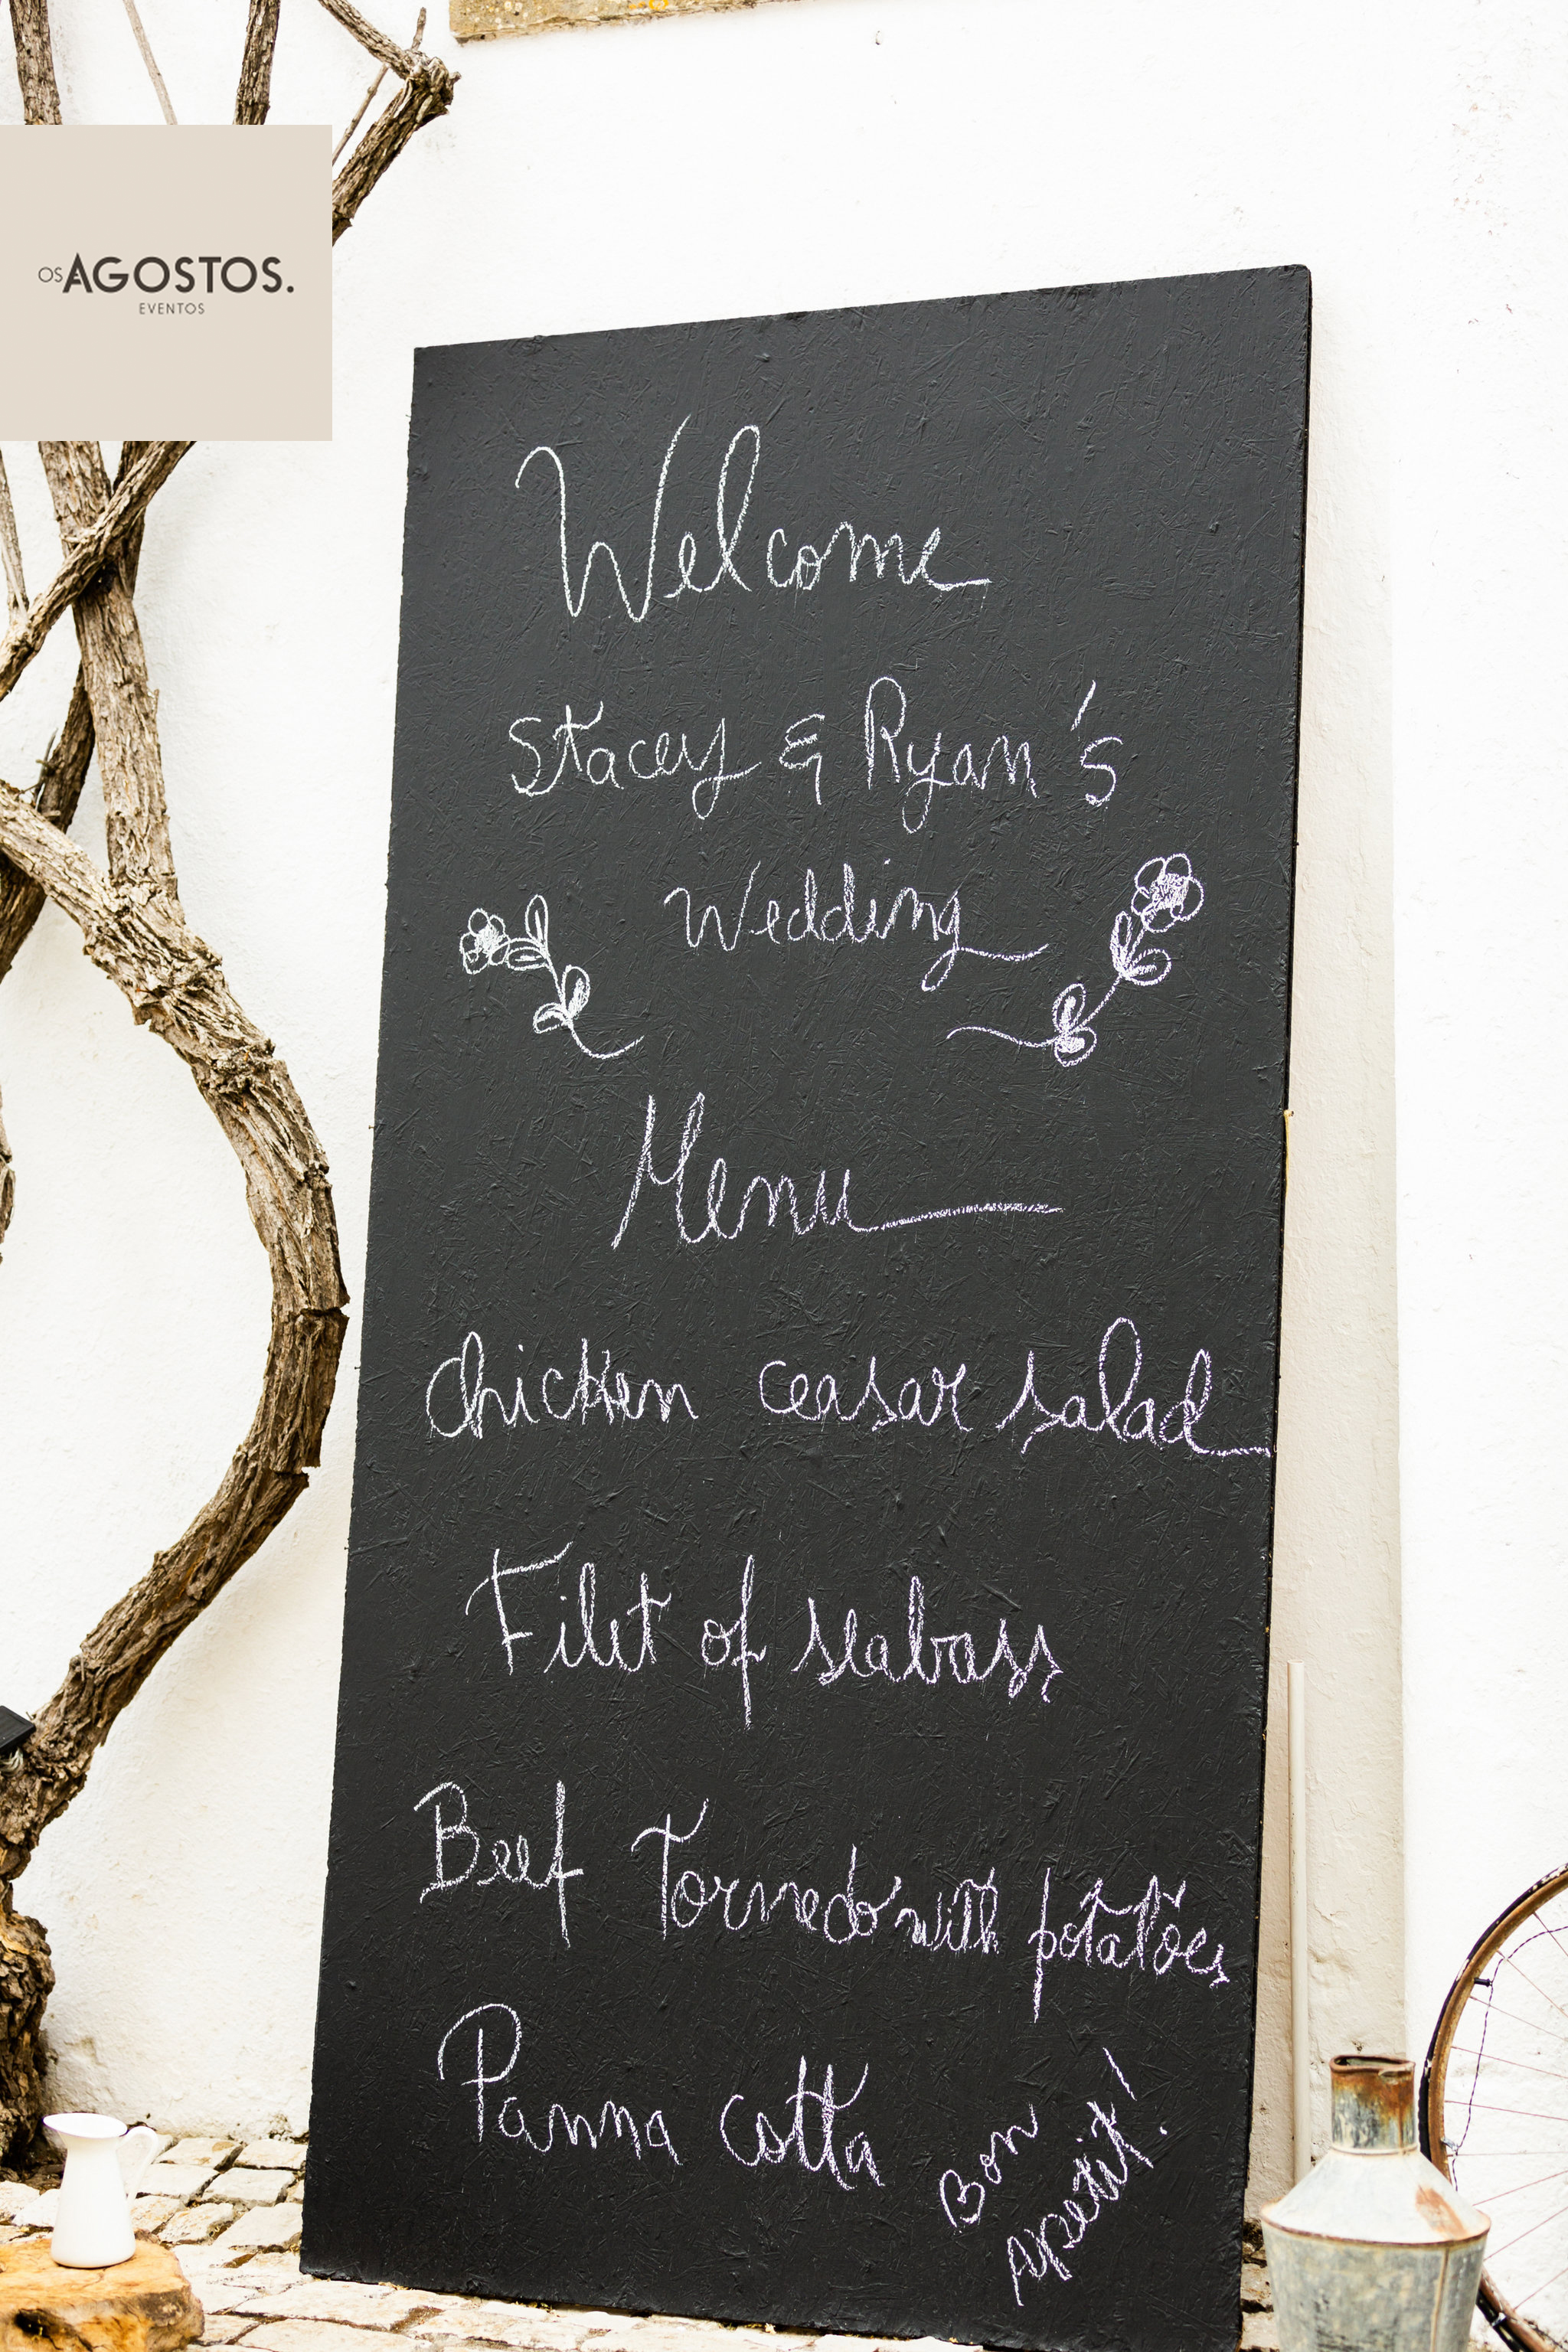 OS AGOSTOS.
EVENTOS
Welcome
Stacey & Ryan's
Wedding
Menu
Chicken ceasar salad
Filet of seabass
Beef Tornedo with potatoes
Panna cotta
Bon
Apetit!